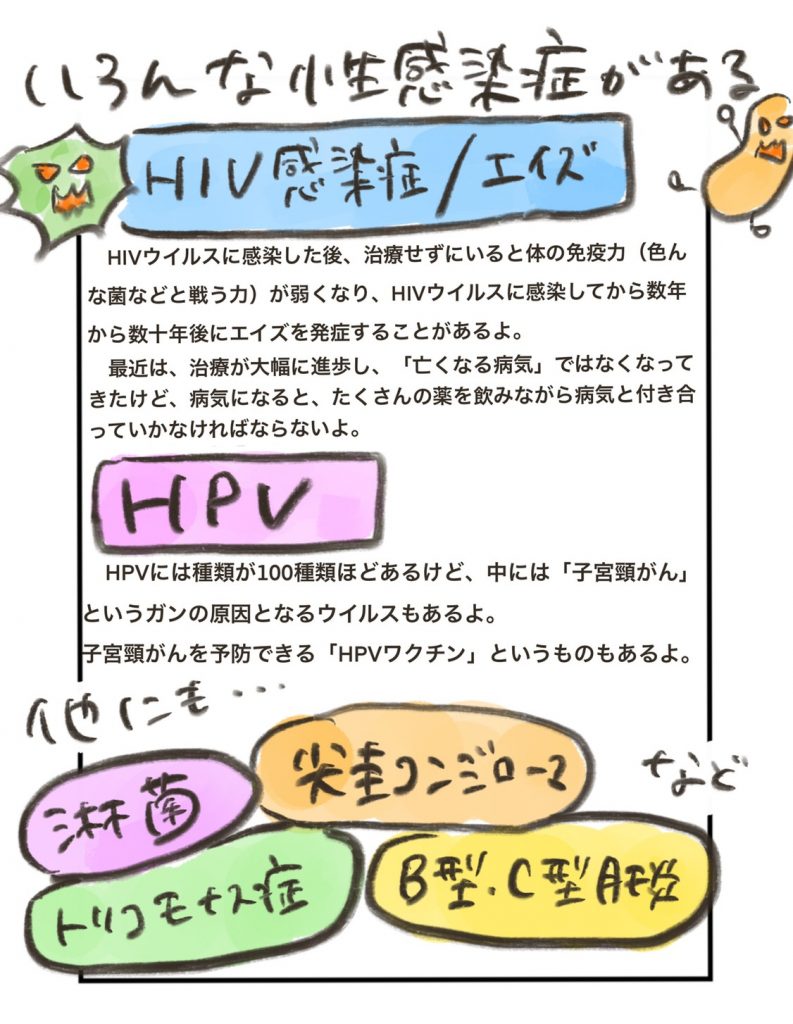 いろんな性感染症がある
HIV感染症/エイズ
HIVウイルスに感染した後、治療せずにいると体の免疫力（色ん
な菌などと戦う力）が弱くなり、HIVウイルスに感染してから数年
から数十年後にエイズを発症することがあるよ。
最近は、治療が大幅に進歩し、「亡くなる病気」ではなくなって
きたけど、病気になると、たくさんの薬を飲みながら病気と付き合
っていかなければならないよ。
HPV
HPVには種類が100種類ほどあるけど、中には「子宮頸がん」
というガンの原因となるウイルスもあるよ。
子宮頸がんを予防できる「HPVワクチン」というものもあるよ。
他にも…
尖圭コンジローマ
など
淋菌
トリコモナス症
B型・C型肝炎